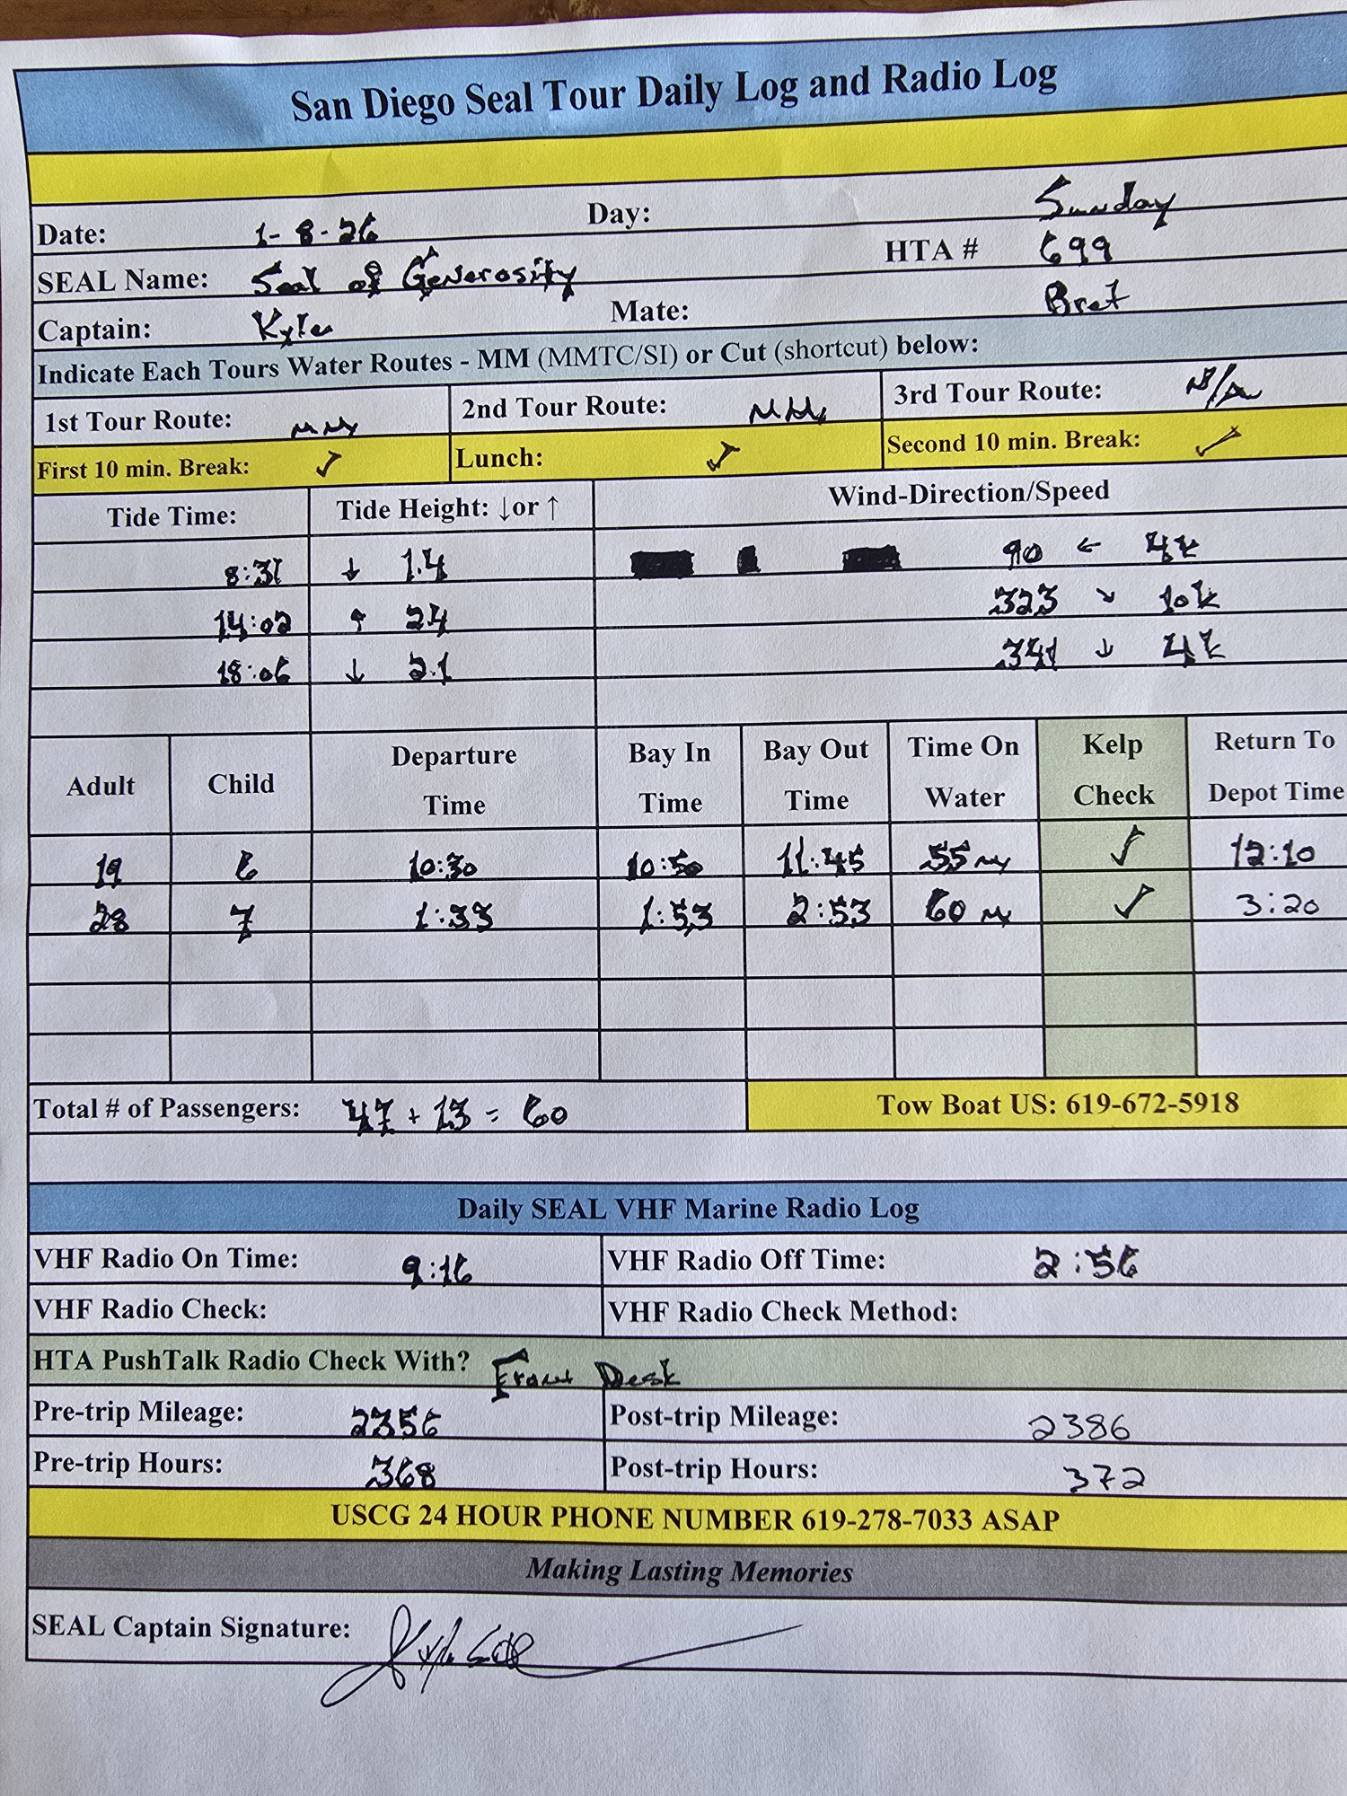 San Diego Seal Tour Daily Log and Radio Log
Date: 1-8-26 Day: Sunday
SEAL Name: Seal of Generosity HTA # 699
Captain: Kyle Mate: Bret
Indicate Each Tours Water Routes - MM (MMTC/SI) or Cut (shortcut) below:
1st Tour Route: MM 2nd Tour Route: MM 3rd Tour Route: N/A
First 10 min. Break: ✓ Lunch: ✓ Second 10 min. Break: ✓
Tide Time: Tide Height: ↓or ↑ Wind-Direction/Speed
8:31 ↓ 1.4 90 ← 4k
14:02 ↑ 2.4 323 ↘ 10k
18:06 ↓ 2.1 341 ↓ 4k
Adult Child Departure Time Bay In Time Bay Out Time Time On Water Kelp Check Return To Depot Time
19 6 10:30 10:50 11:45 55 m ✓ 12:10
28 7 1:33 1:53 2:53 60 m ✓ 3:20
Total # of Passengers: 47 + 13 = 60 Tow Boat US: 619-672-5918
Daily SEAL VHF Marine Radio Log
VHF Radio On Time: 9:16 VHF Radio Off Time: 2:56
VHF Radio Check: VHF Radio Check Method:
HTA PushTalk Radio Check With? Front Desk
Pre-trip Mileage: 2356 Post-trip Mileage: 2386
Pre-trip Hours: 368 Post-trip Hours: 372
USCG 24 HOUR PHONE NUMBER 619-278-7033 ASAP
Making Lasting Memories
SEAL Captain Signature: